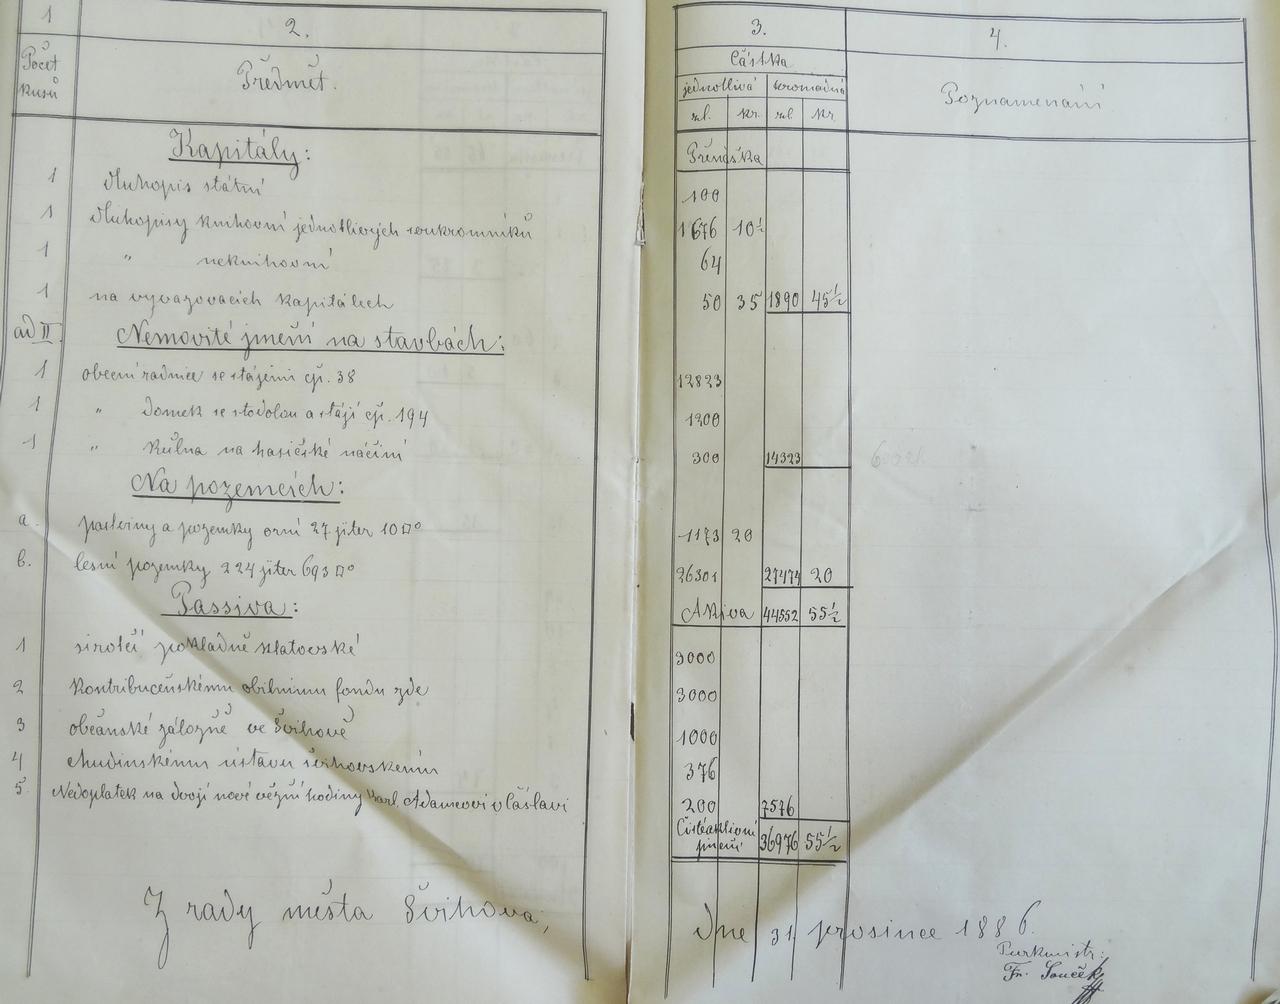 1 2. 3. 4.
Počet kusů Předmět. Částka Poznamenání
jednotlivá hromadná
zl. kr. zl. kr
Kapitály: Přenáška
1 dluhopis státní 100
1 dluhopisy knihovní jednotlivých soukromníků 1676 10½
1 " neknihovní 64
1 na vyvazovacích kapitálech 50 35 1890 45½
ad II. Nemovité jmění na stavbách:
1 obecní radnice se stájemi čp. 38 12823
1 " domek se stodolou a stájí čp. 194 1200
1 " kůlna na hasičské náčiní 300 14323
Na pozemcích:
a. pastviny a pozemky orní 27 jiter 10□° 1173 20
b. lesní pozemky 224 jiter 693□° 26301 27474 20
Passiva: Aktiva 44552 55½
1 sirotčí pokladně klatovské 3000
2 Kontribučenskému obilnímu fondu zde 3000
3 občanské záložně ve Švihově 1000
4 chudinskému ústavu švihovskému 376
5. Nedoplatek na dvojí nové věžní hodiny Karl. Adamcovi v Čáslavi 200 7576
Čisté aktivní jmění 36976 55½
Z rady města Švihova, dne 31 prosince 1886.
Purkmistr:
Fr. Souček